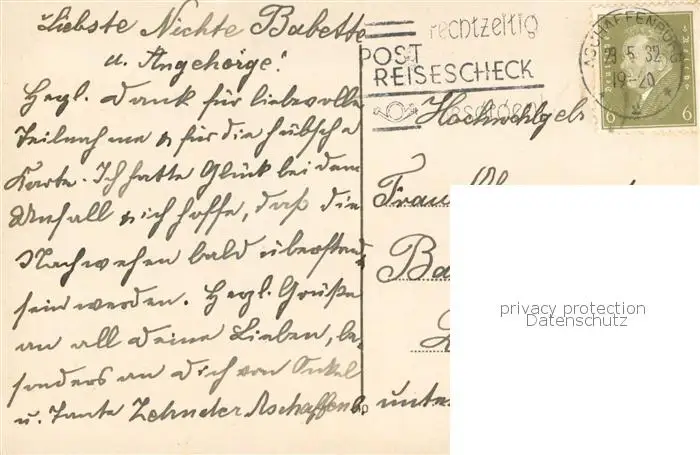 Liebste Nichte Babette
u. Angehörige!
Herzl. Dank für liebevolle
Teilnahme & für die hübsche
Karte. Ich hatte Glück bei dem
Unfall & ich hoffe, daß die
Nachwehen bald überstanden
sein werden. Herzl. Grüße
an all deine Lieben, be-
sonders an dich von Onkel
u. Tante Zehnder Aschaffenb.
rechtzeitig
POST
REISESCHECK
ASCHAFFENBURG
5. 32
19-20
DEUTSCHES REICH
6 6
Hochwohlgeb
Frau
Ba
unter
privacy protection
Datenschutz